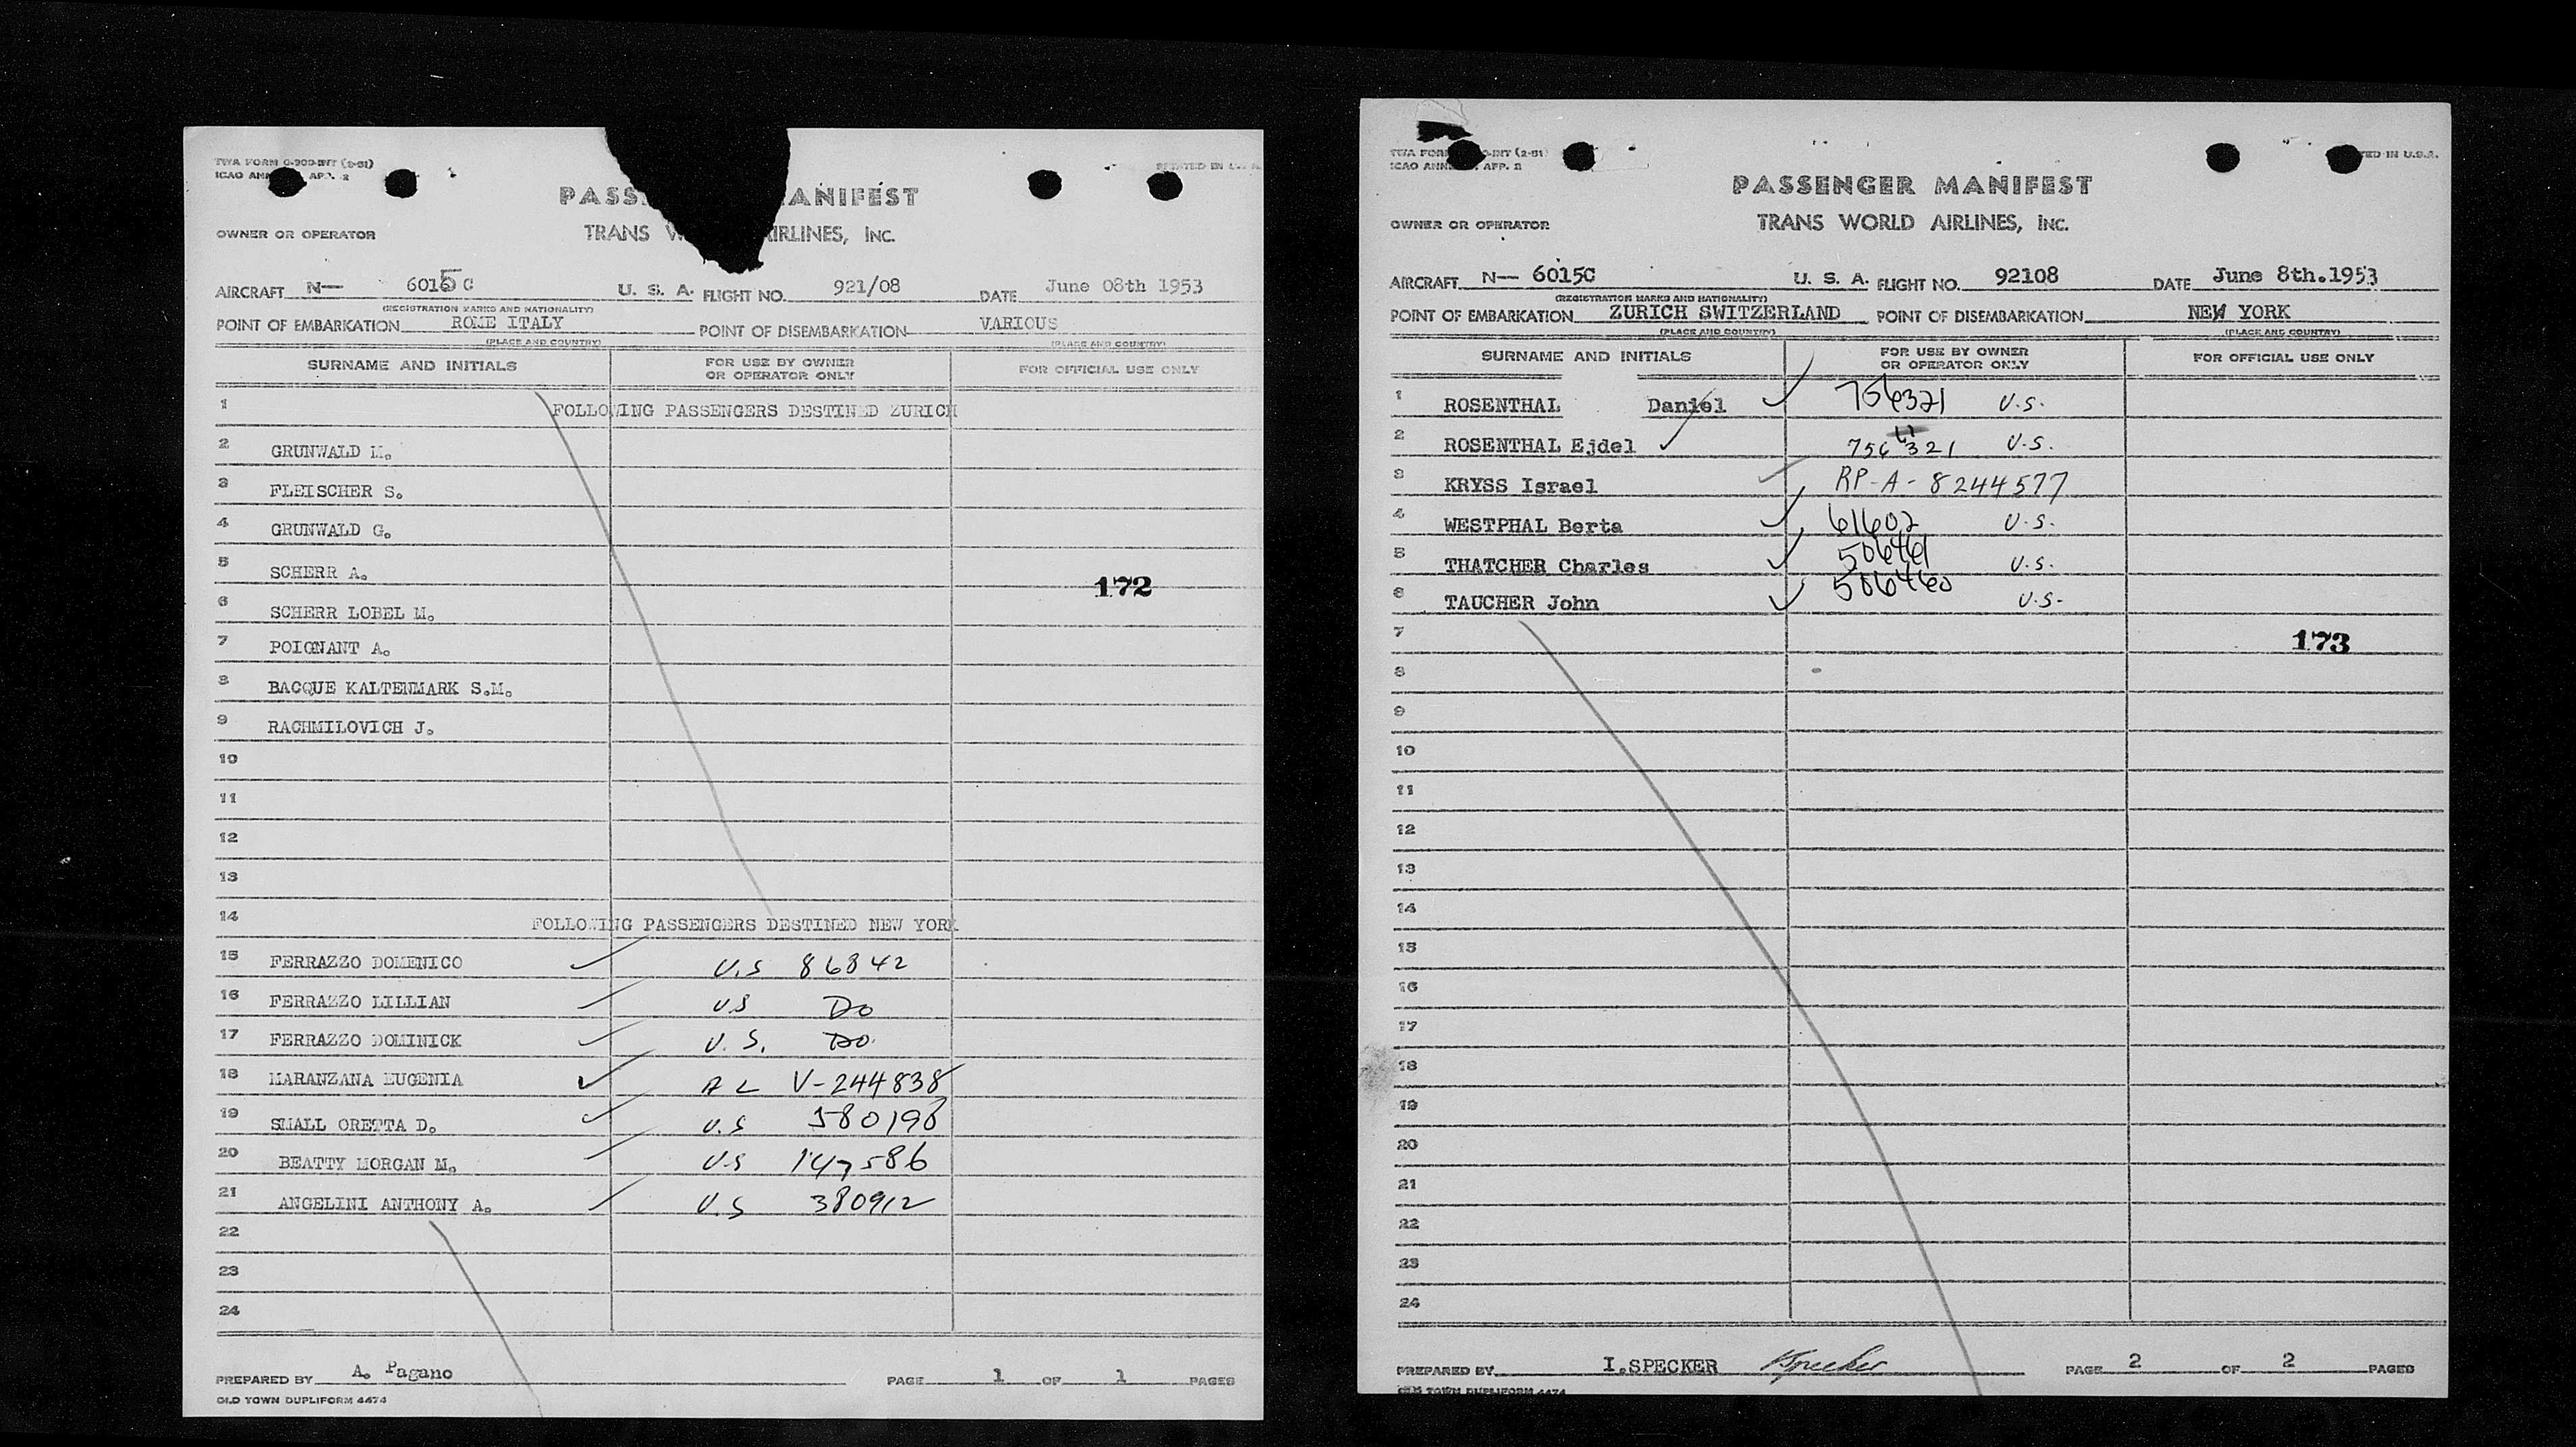 TWA FORM O-900-INT (2-51)
ICAO ANN APP. 2
PRINTED IN U.S.A.
PASS ANIFEST
TRANS W IRLINES, INC.
OWNER OR OPERATOR
AIRCRAFT N— 6015C U. S. A. FLIGHT NO. 921/08 DATE June 08th 1953
(REGISTRATION MARKS AND NATIONALITY)
POINT OF EMBARKATION ROME ITALY POINT OF DISEMBARKATION VARIOUS
(PLACE AND COUNTRY) (PLACE AND COUNTRY)
SURNAME AND INITIALS FOR USE BY OWNER OR OPERATOR ONLY FOR OFFICIAL USE ONLY
1 FOLLOWING PASSENGERS DESTINED ZURICH
2 GRUNWALD M.
3 FLEISCHER S.
4 GRUNWALD G.
5 SCHERR A.
172
6 SCHERR LOBEL M.
7 POIGNANT A.
8 BACQUE KALTENMARK S.M.
9 RACHMILOVICH J.
10
11
12
13
14 FOLLOWING PASSENGERS DESTINED NEW YORK
15 FERRAZZO DOMENICO U.S 86842
16 FERRAZZO LILLIAN U.S Do
17 FERRAZZO DOMINICK U.S. Do.
18 MARANZANA EUGENIA AL V-244838
19 SMALL ORETTA D. U.S 580198
20 BEATTY MORGAN M. U.S 147586
21 ANGELINI ANTHONY A. U.S 380912
22
23
24
PREPARED BY A. Pagano PAGE 1 OF 1 PAGES
OLD TOWN DUPLIFORM 4474
TWA FORM -INT (2-51)
ICAO ANN . APP. 2
TED IN U.S.A.
PASSENGER MANIFEST
TRANS WORLD AIRLINES, INC.
OWNER OR OPERATOR
AIRCRAFT N— 6015C U. S. A. FLIGHT NO. 92108 DATE June 8th.1953
(REGISTRATION MARKS AND NATIONALITY)
POINT OF EMBARKATION ZURICH SWITZERLAND POINT OF DISEMBARKATION NEW YORK
(PLACE AND COUNTRY) (PLACE AND COUNTRY)
SURNAME AND INITIALS FOR USE BY OWNER OR OPERATOR ONLY FOR OFFICIAL USE ONLY
1 ROSENTHAL Daniel 756321 U.S.
2 ROSENTHAL Ejdel 756321 U.S.
3 KRYSS Israel RP-A-8244577
4 WESTPHAL Berta 61602 U.S.
5 THATCHER Charles 506461 U.S.
6 TAUCHER John 506460 U.S.
7 173
8
9
10
11
12
13
14
15
16
17
18
19
20
21
22
23
24
PREPARED BY I.SPECKER ISpecker PAGE 2 OF 2 PAGES
OLD TOWN DUPLIFORM 4474